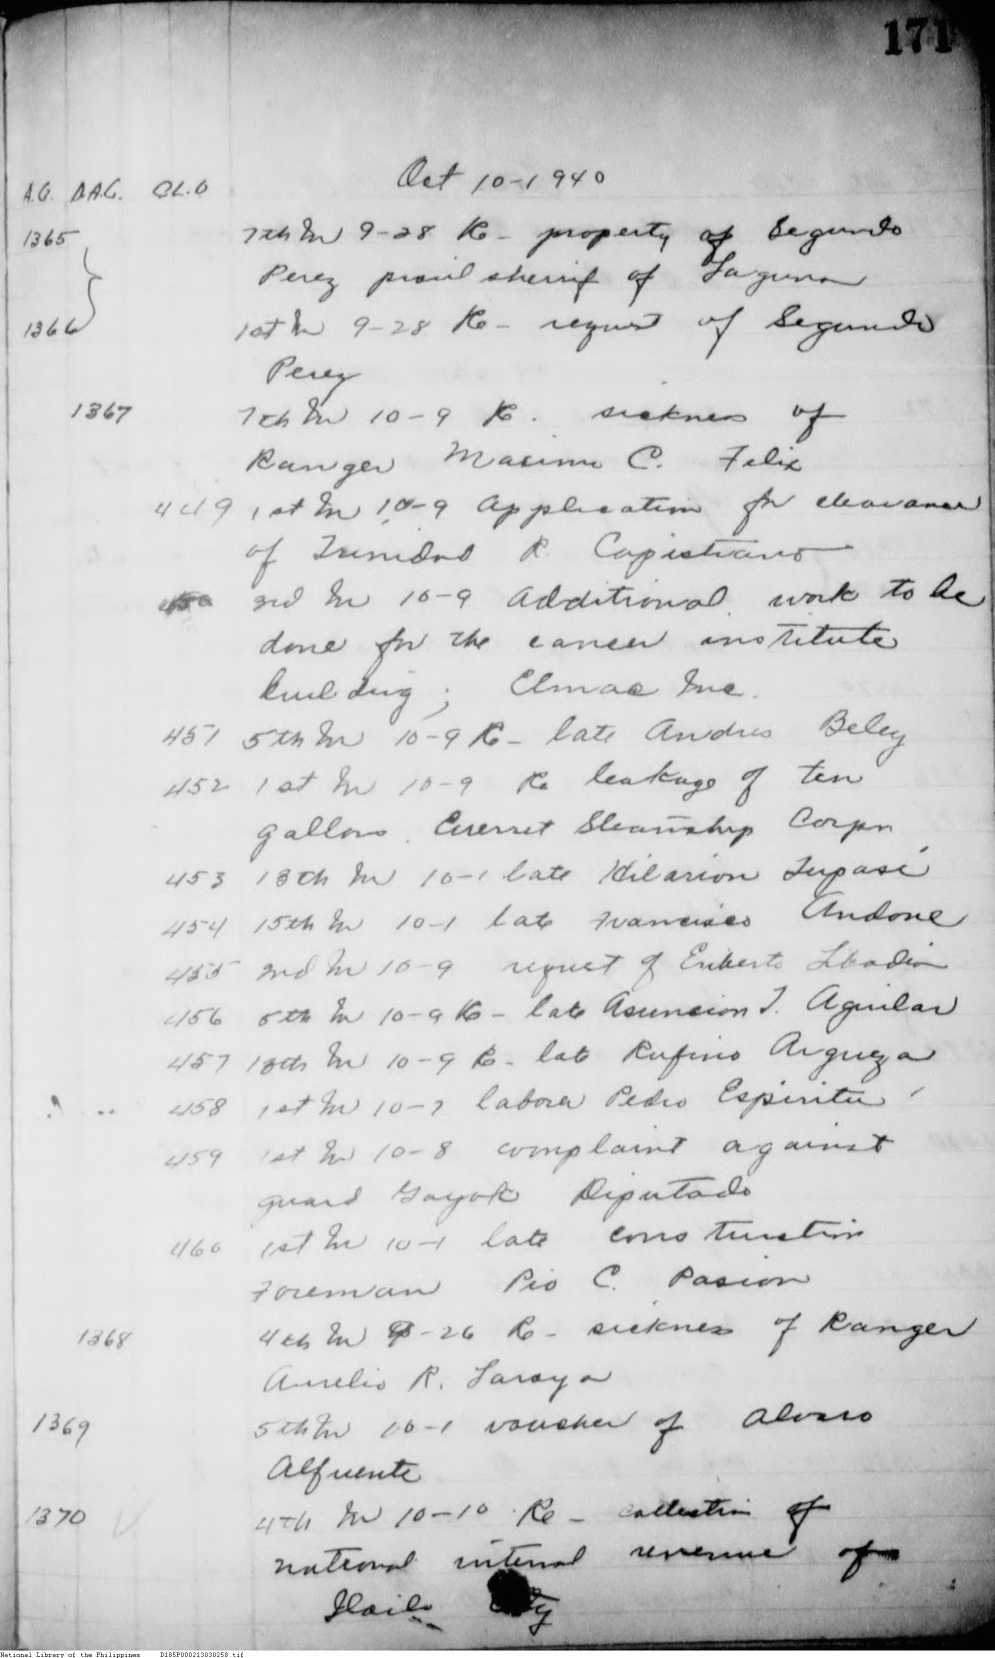 171
Oct 10-1940
A.G. D.A.G. CL.O
1365 7th In 9-28 Re- property of Segundo
Perez provil sherrif of Laguna
1366 1st In 9-28 Re- request of Segundo
Perez
1367 7th In 10-9 Re. sickness of
Ranger Maximo C. Felix
449 1st In 10-9 Application for clearance
of Trinidad R. Capistrano
450 3rd In 10-9 Additional work to be
done for the cancer institute
building; Elmac Inc.
451 5th In 10-9 Re- late Andres Beley
452 1st In 10-9 Re leakage of ten
gallons. Everret Steamship Corpn
453 13th In 10-1 late Hilarion Tupasi
454 15th In 10-1 late Francisco Andone
455 2nd In 10-9 request of Eriberto
456 5th In 10-9 Re- late Asuncion T. Aguilar
457 10th In 10-9 Re- late Rufino Argueza
458 1st In 10-7 labora Pedro Espiritu
459 1st In 10-8 complaint against
guard Diputado
460 1st In 10-1 late construction
Foreman Pio C. Pasion
1368 4th In 9-26 Re- sickness of Ranger
Aurelio R. Laraya
1369 5th In 10-1 voucher of Alvaro
Alfuente
1370 4th In 10-10 Re- collection of
national internal revenue of
Iloilo City
National Library of the Philippines D185P000213038258.tif